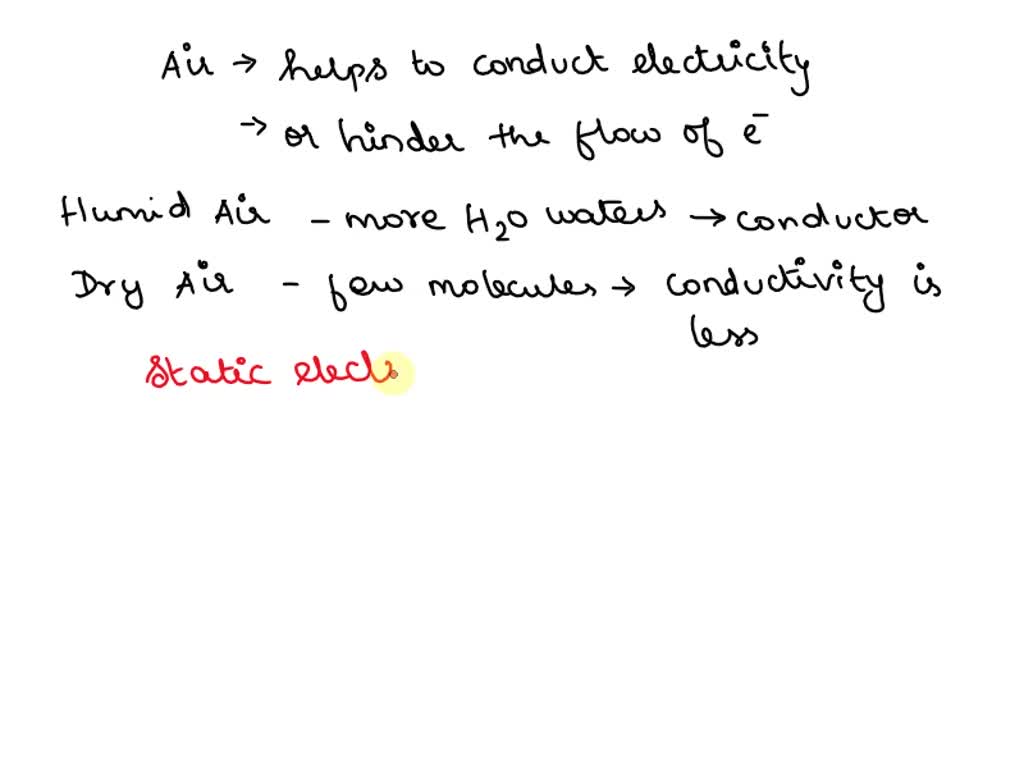 Air → helps to conduct electricity
→ or hinder the flow of e⁻
Humid Air - more H₂O waters → conductor
Dry Air - few molecules → conductivity is
less
Static elect